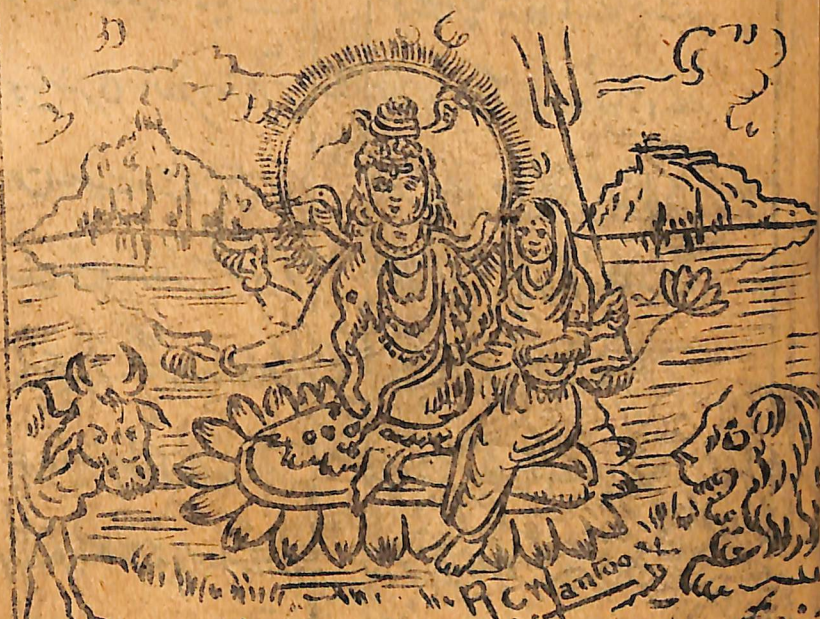 R C Wantoo